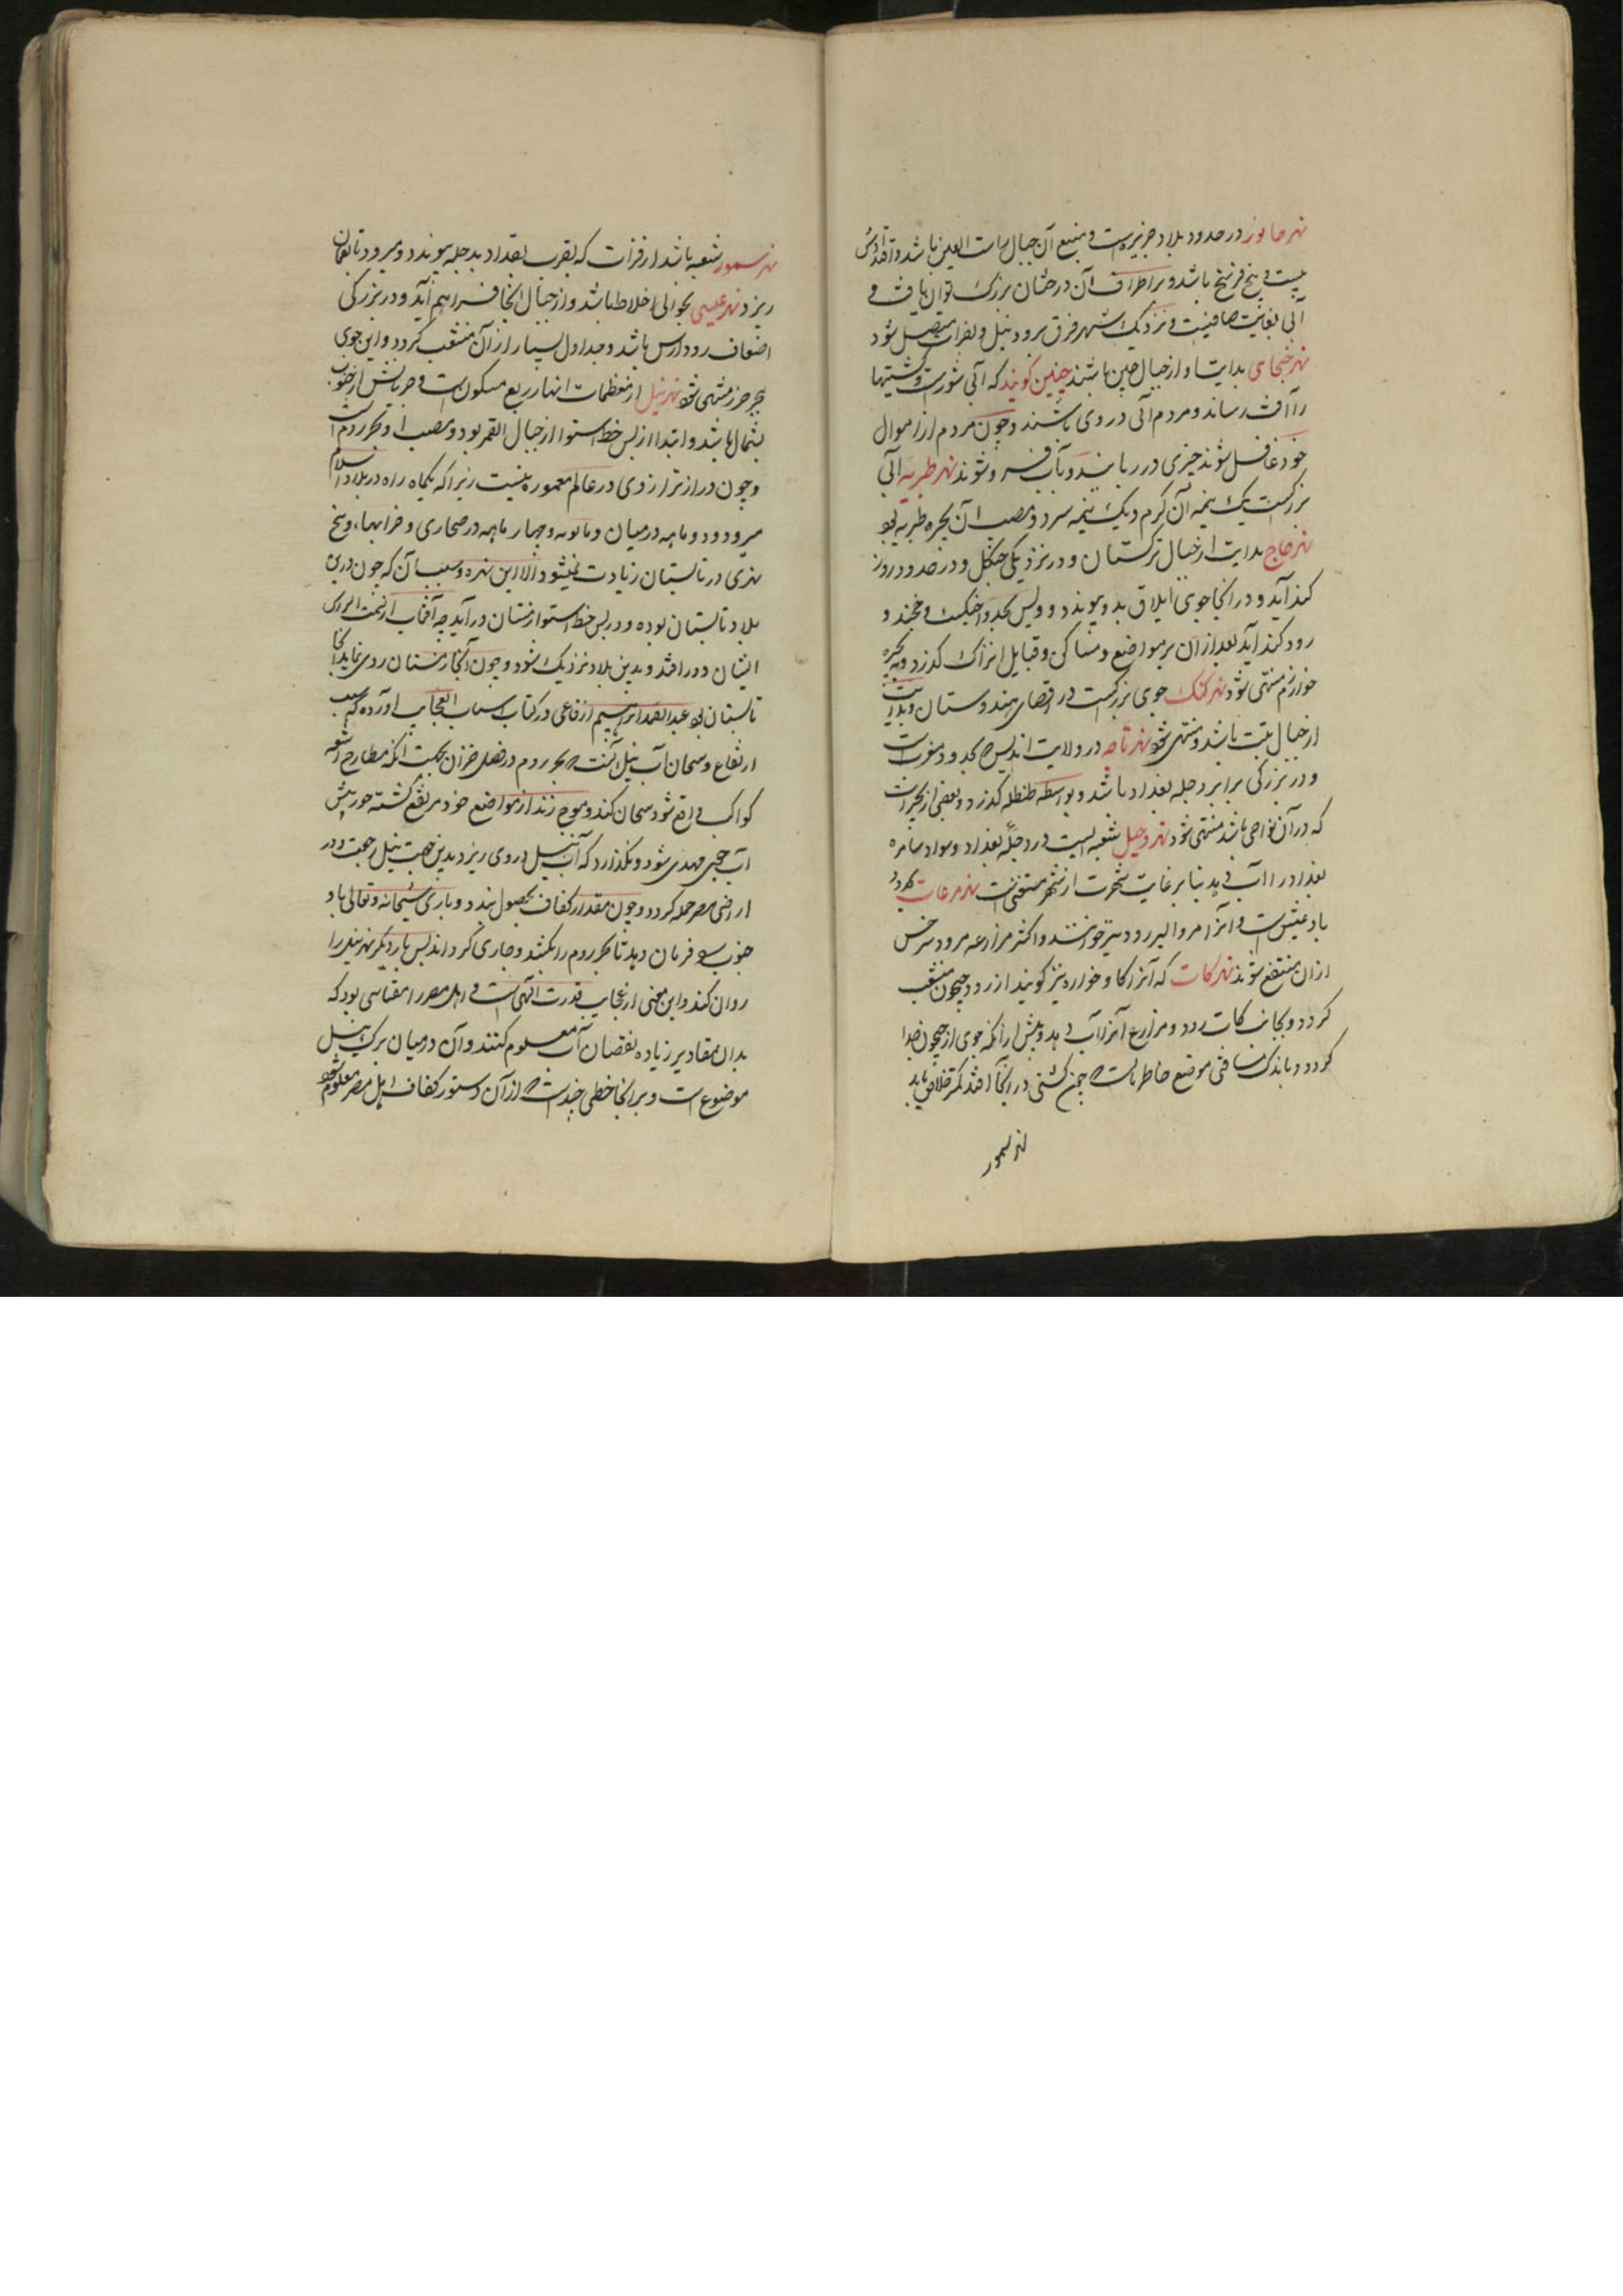 نهر خابور در حدود بلاد جزیره است و منبع آن جبال راست العین باشد و
بیست و پنج فرسخ باشد و بر اطراف آن درختان بزرک توان یافت و
آبی بغایت صافیست و نزدیک شهر فرق برود نیل و بفرات متصل شود
نهر خنجای بدایت او از جبال چین باشند چنین کویند که آبی شورست و کشتیها
را آفت رساند و مردم آبی در وی باشند و چون مردم از اموال
خود غافل شوند چیزی در ربایند و بآب فرو شوند نهر طبریه آبی
بزرکست یک نیمه آن کرم و یک نیمه سرد و مصب آن بحیره طبریه بود
نهر جاج بدایت از جبال ترکستان و در نزدیکی جنکل و در حدود روز
کند آید و در انجا جوی ایلاق بدو پیوندد و پس بحدود اخیکت و خجند و
رود کند آید بعد از آن بر مواضع و مساکن و قبایل اتراک کذرد و به بحیره
خوارزم منتهی شود نهر کنک جوی بزرکست در اقصای هندوستان و بدایت
از جبال تبت باشد و منتهی شود نهر تاجه در ولایت اندلس بحدود مغربست
و در بزرکی برابر دجله بغداد باشد و بواسطه طلیطله کذرد و بعضی از بحیرات
که در آن نواحی باشد منتهی شود نهر دجیل شعبه ایست در دجله بغداد و سواد سامره
بغداد را آب دهد بنا بر غایت شهرت از شهر مستغنی است نهر مرغاب
بادغیش است و آنرا مرو الرود نیز خوانند و اکثر مزارعه مرو و سرخس
از ان منتفع شوند نهر کات که آنرا کاو خواره نیز کویند از رود جیحون منشعب
کردد و بجانب کات رود و مزارع آنرا آب دهد و پیش از آنکه جوی از جیحون جدا
کردد و باندک مسافتی موضع خاطر است چون کشتی در انجا افتد کمتر خلاصی یابد
نهر سمور
نهر سمور شعبه باشد از فرات که بقرب بغداد بدجله پیوندد و میرود تا بعمان
ریزد نهر عیسی بحوالی اخلاط باشد و از جبال انجا فراهم آید و در بزرکی
اضعاف رود ارس باشد و جداول بسیار از آن منشعب کردد و این جوی
ببحر خزر منتهی شود نهر نیل از معظمات انهار ربع مسکون است و جریانش از جنوب
بشمال باشد و ابتدا از پس خط استوا از جبال القمر بود و مصب او بحر روم است
و چون درازتر از وی در عالم معموره نیست زیرا که یکماه راه در بلاد اسلام
میرود و دو ماهه در میان و چهار ماهه در صحاری و خرابها و هیچ
نهری در تابستان زیادت نمیشود الا این نهر و سبب آن که چون درین
بلاد تابستان بوده و در پس خط استوا زمستان در آید چه آفتاب از سمت الراس
ایشان دور افتد و بدین بلاد نزدیک شود و چون آنجا زمستان روی نماید اینجا
تابستان بود عبدالصمد ابراهیم ارفاعی در کتاب اسباب العجایب اورده که سبب
ارتفاع و سیحان آب نیل آنست که بحر روم در فصل خزان بجهت انکه مطارح اشعه
کواکب واقع شود سیحان کند و موج زند از مواضع خود مرتفع کشته چون پیش
آب مهدی شود و نکذارد که آب نیل در وی ریزد بدین جهت نیل رجعت و در
اراضی مصر حمله کردد و چون مقدار کفاف بحصول پیوندد و باری سبحانه و تعالی باد
جنوب را فرمان دهد تا بحر روم را بکشد و جاری کرداند پس بار دیکر نهر نیل را
روان کند و این معنی از عجایب قدرت الهی است و اهل مصر را مقیاسی بود که
بدان مقادیر زیاده نقصان آب معلوم کنند و آن در میان برکه نیل
موضوع است و بر انجا خطی چند است که از آن دستور کفاف اهل مصر معلوم شود